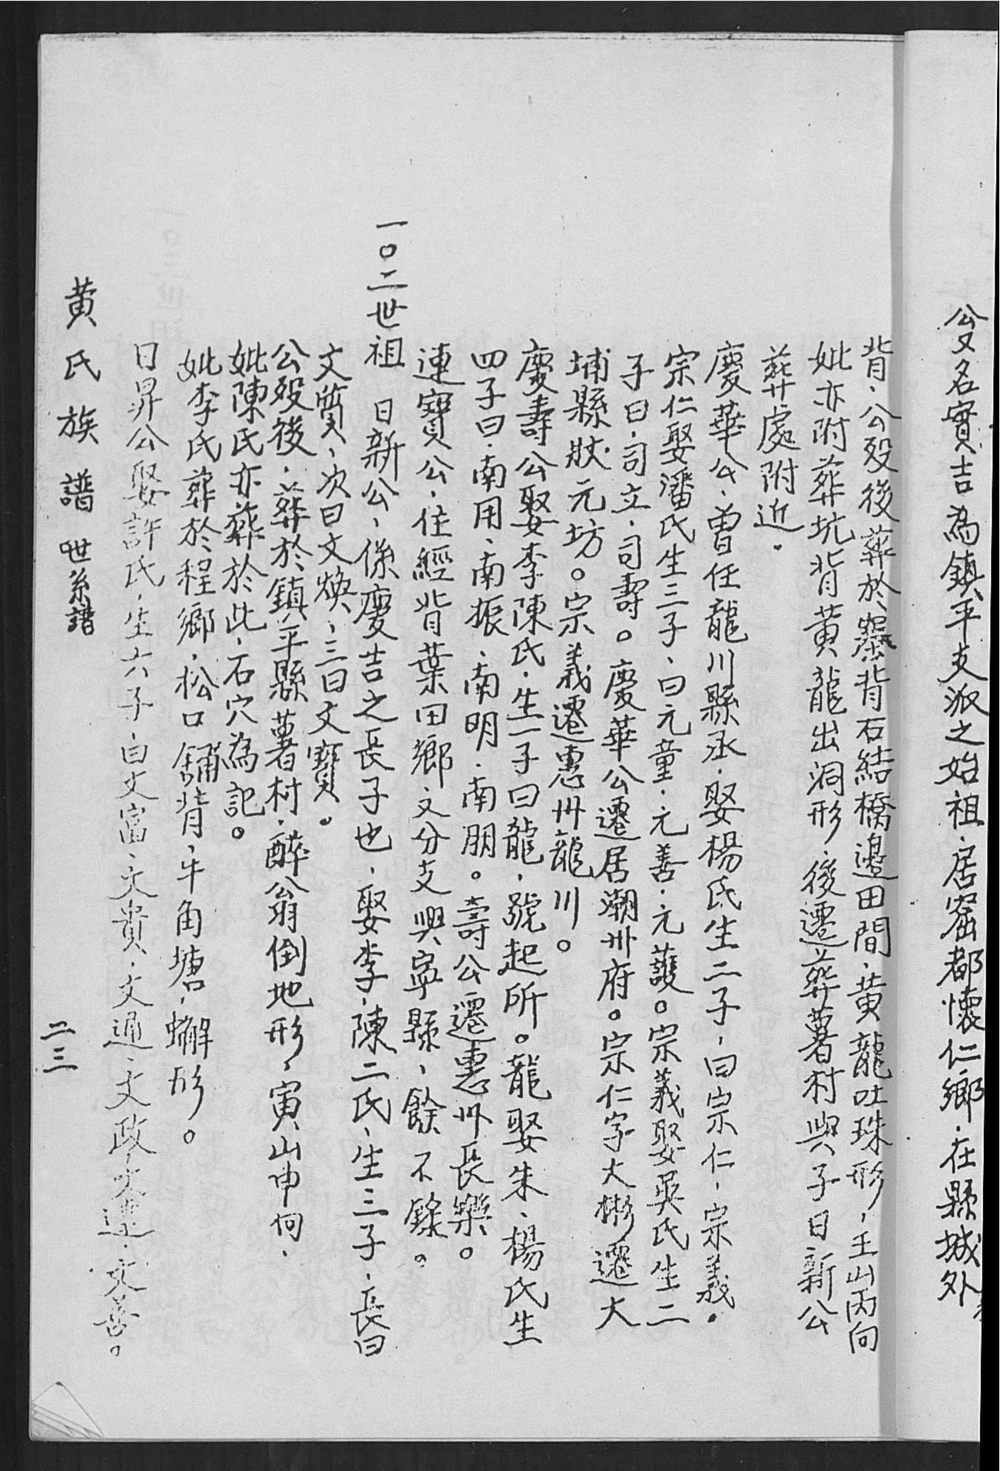 公又名實吉為鎮平支派之始祖．居窑都懷仁鄉．在縣城外
背．公殁後葬於壆背石結橋邊田間．黄龍吐珠形，壬山丙向
妣亦附葬坑背黄龍出洞形．後遷葬薯村與子日新公
葬處附近．
慶華公、曾任龍川縣丞．娶楊氏生二子，曰宗仁，宗義．
宗仁娶潘氏生三子、曰元童．元善．元護。宗義娶吳氏生二
子曰．司文．司壽。慶華公遷居潮州府。宗仁字大彬遷大
埔縣狀元坊。宗義遷惠州龍川。
慶壽公娶李陳氏．生一子曰龍，號起所。龍娶朱、楊氏生
四子曰．南用．南振．南明．南朋。壽公遷惠州長樂。
連寶公．住經背葉田鄉．又分支興寧縣、餘不錄。
一０二世祖 日新公、係慶吉之長子也．娶李．陳二氏．生三子．長曰
文質、次曰文煥、三曰文寶。
公殁後．葬於鎮平縣薯村．醉翁倒地形，寅山申向．
妣陳氏亦葬於此．石穴為記。
妣李氏葬於程鄉．松口舖背．牛角塘．蠏形。
日昇公娶許氏．生六子．曰文富．文貴．文通．文政．文達．文善。
黄氏族譜世系譜
二三